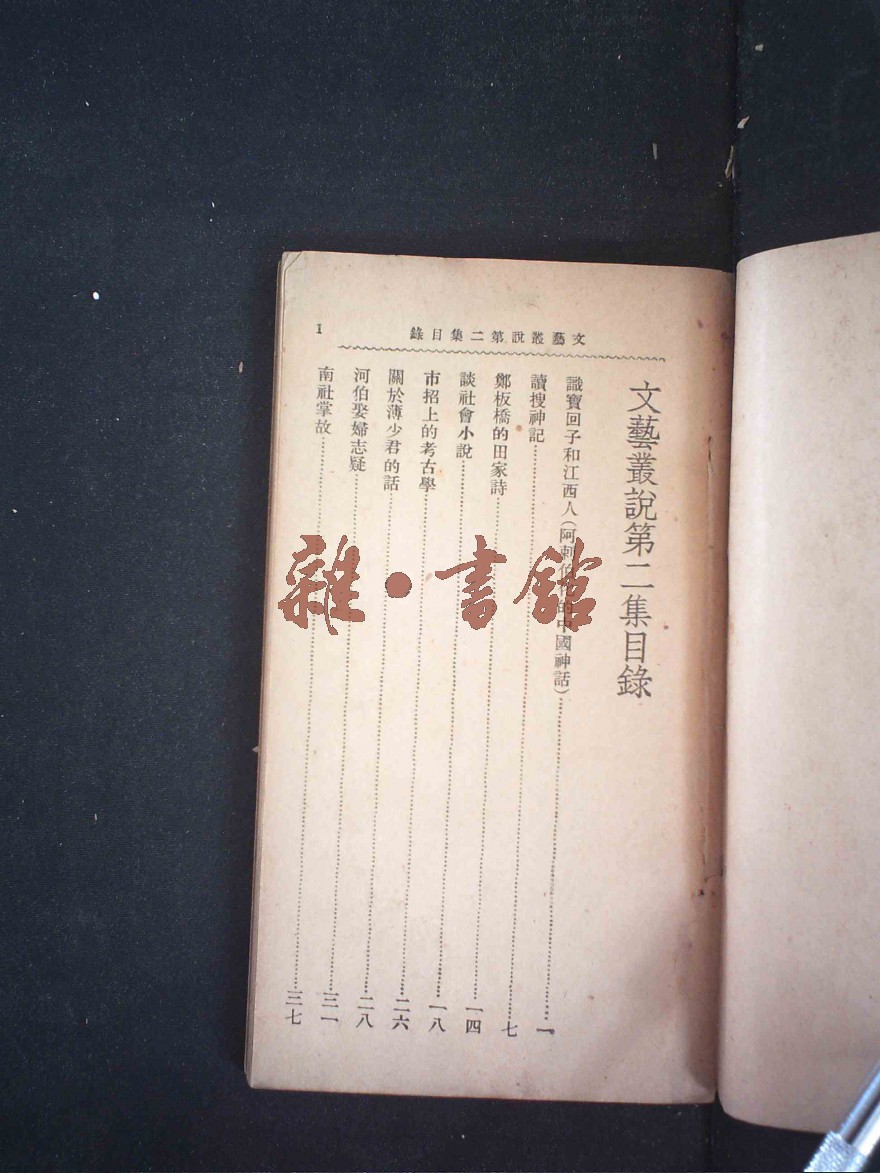 文藝叢說第二集目錄
1
文藝叢說第二集目錄
識寶回子和江西人(阿剌伯化的中國神話)……一
讀搜神記……七
鄭板橋的田家詩……一四
談社會小說……一八
市招上的考古學……二六
關於薄少君的話……二八
河伯娶婦志疑……三一
南社掌故……三七
雜·書館